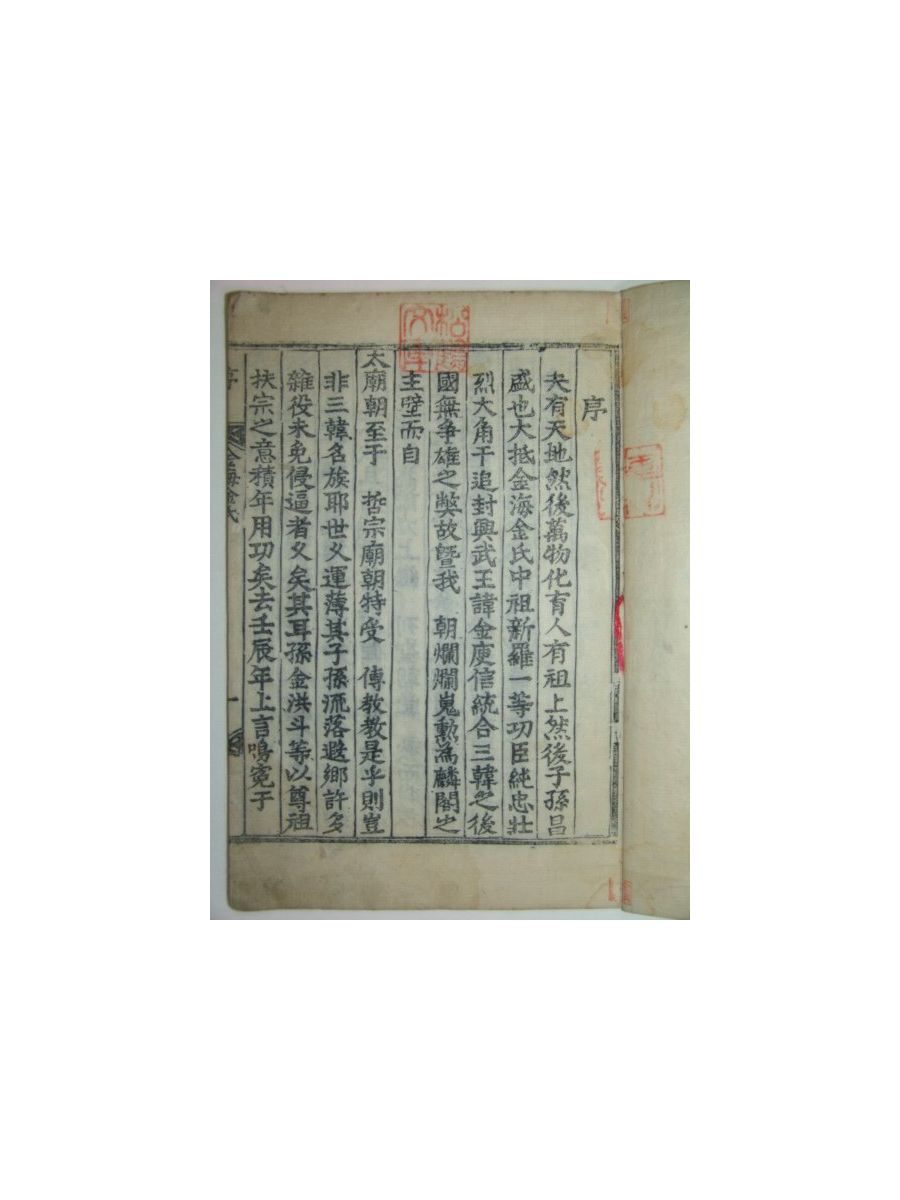 序
夫有天地然後萬物化育人有祖上然後子孫昌
盛也大抵金海金氏中祖新羅一等功臣純忠壯
烈大角干追封興武王諱金庾信統合三韓之後
國無爭雄之弊故曁我 朝爛爛嵬勳為麟閣之
主壁而自
太廟朝至于 哲宗廟朝特受 傳教教是乎則豈
非三韓名族耶世久運薄其子孫流落遐鄉許多
雜役未免侵逼者久矣其耳孫金洪斗等以尊祖
扶宗之意積年用功矣去壬辰年上言鳴寃于
序 金海金氏 一